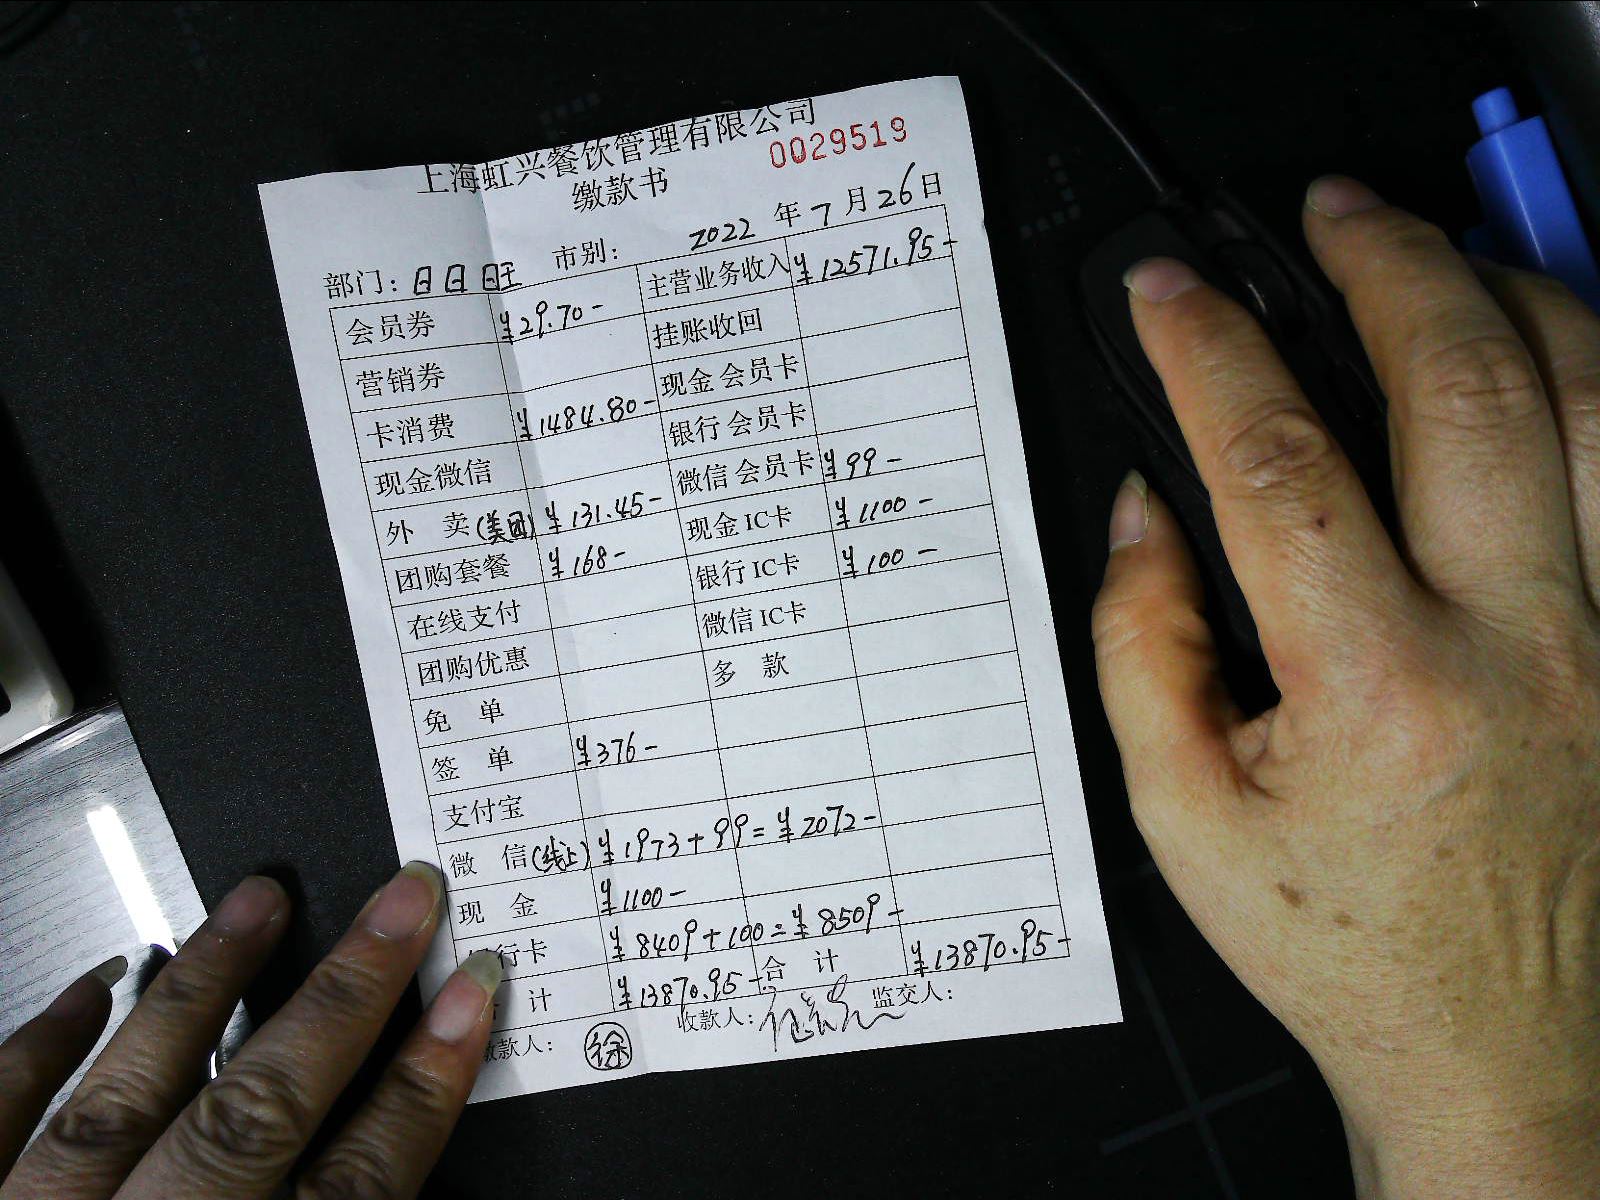 上海虹兴餐饮管理有限公司
缴款书
0029519
部门：日日旺 市别： 2022 年 7 月 26 日
会员券 ¥29.70- 主营业务收入 ¥12571.95-
营销券 挂账收回
卡消费 ¥1484.80- 现金会员卡
现金微信 银行会员卡
外 卖(美团) ¥131.45- 微信会员卡 ¥99-
团购套餐 ¥168- 现金IC卡 ¥1100-
在线支付 银行IC卡 ¥100-
团购优惠 微信IC卡
免 单 多 款
签 单 ¥376-
支付宝
微 信(线上) ¥1973+99=¥2072-
现 金 ¥1100-
行卡 ¥8409+100=¥8509-
计 ¥13870.95- 合 计 ¥13870.95-
缴款人： 徐 收款人： 监交人：